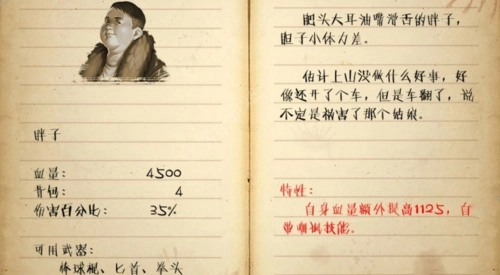 胖子
血量: 4500
背包: 4
伤害百分比: 35%
可用武器:
棒球棍、匕首、拳头
肥头大耳油嘴滑舌的胖子，
胆子小体力差。
估计上山没做什么好事，好
像还开了个车，但是车翻了，说
不定是祸害了那个姑娘。
特性:
自身血量额外提高1125，自
带嘲讽技能。